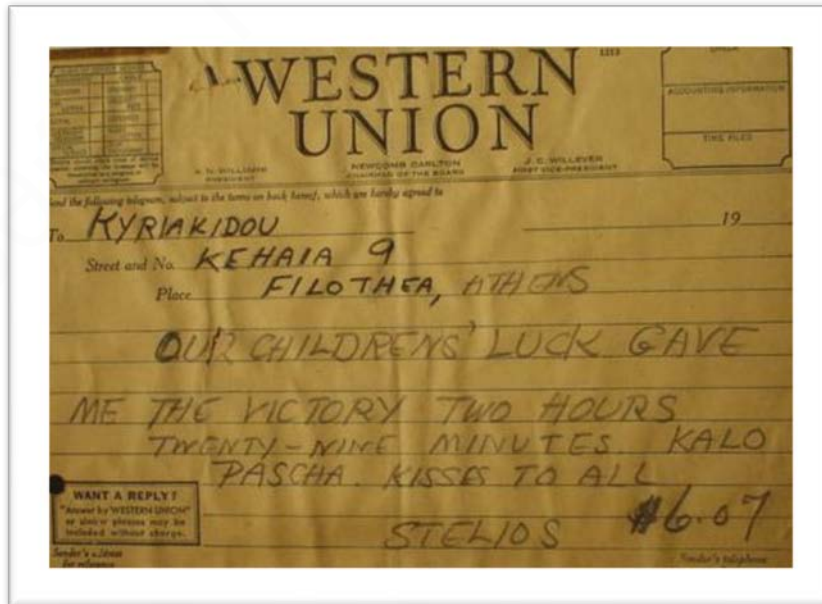 1213
WESTERN
UNION
ACCOUNTING INFORMATION
TIME FILED
PRESIDENT
NEWCOMB CARLTON
CHAIRMAN OF THE BOARD
J. C. WILLEVER
FIRST VICE-PRESIDENT
Send the following telegram, subject to the terms on back hereof, which are hereby agreed to
To KYRIAKIDOU 19
Street and No. KEHAIA 9
Place FILOTHEA, ATHENS
OUR CHILDRENS' LUCK GAVE
ME THE VICTORY TWO HOURS
TWENTY-NINE MINUTES. KALO
PASCHA. KISSES TO ALL
STELIOS $6.07
WANT A REPLY?
"Answer by WESTERN UNION"
or similar phrases may be
included without charge.
Sender's address
for reference
Sender's telephone